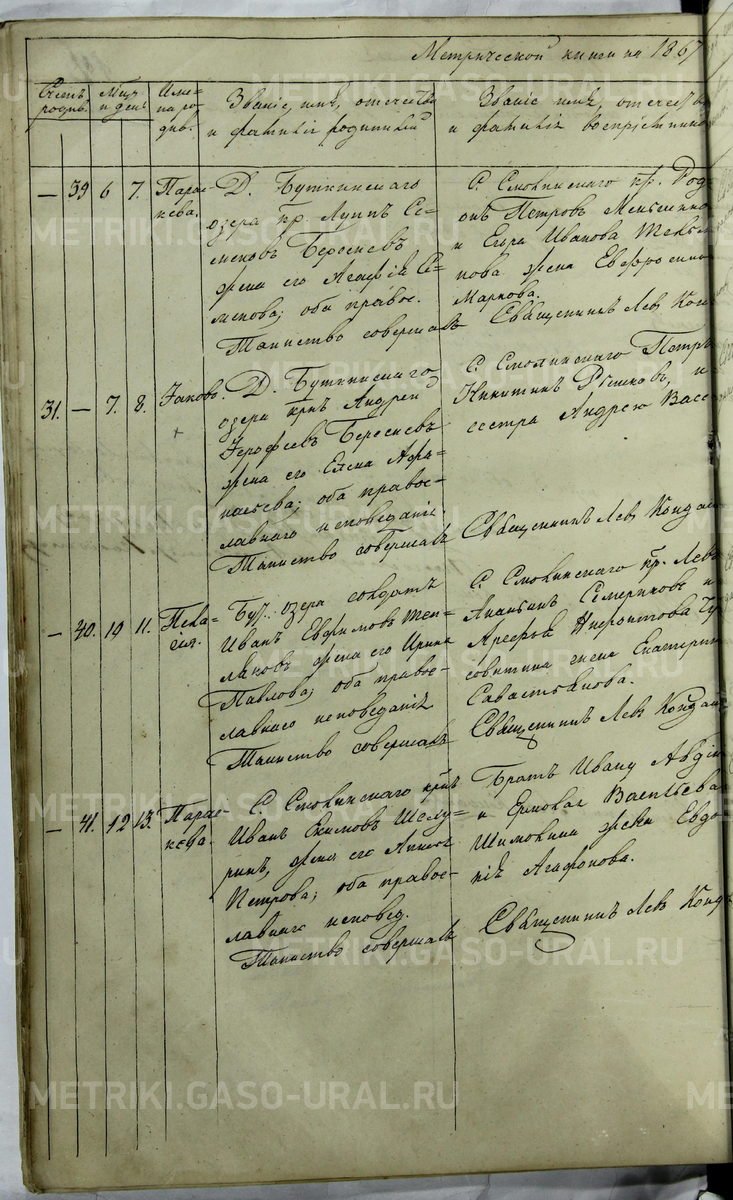 Метрической книги на 1867
Счетъ родив.
Мѣц. и день
Имена родив.
Званіе, имя, отчество
и фамилія родителей
Званіе имя, отчество
и фамилія воспріемник
— 39 6 7. Параскева.
Д. Буткинскаго
озера кр. Луппъ Се-
меновъ Береснев
жена его Агафія Се-
менова; оба правос.
Таинство совершалъ
С. Смолинскаго кр. Род-
онъ Петровъ
и Егора Иванова
жена Евфросинія
Маркова.
Священникъ Левъ Конд
31. — 7. 8. Іаковъ.
Д. Буткинскаго
озера крнъ Андрей
Ерофеевъ Бересневъ
жена его Елена Афа-
насьева; оба правос-
лавнаго исповеданія.
Таинство совершалъ
С. Смолинскаго Петръ
Никитинъ и
сестра Андрею Васс
Священникъ Левъ Конда
— 40. 10 11. Пелагія.
Бут. озера солдатъ
Иванъ Евфимовъ
жена его Ирина
Павлова; оба правос-
лавнаго исповеданія
Таинство совершалъ
С. Смолинскаго кр. Левъ
Ананьинъ Семериковъ и
Арефья
жена Екатерина
Савастьянова.
Священникъ Левъ Конда
— 41. 12 13. Параскева.
С. Смолинскаго крнъ
Иванъ Екимовъ Шелу-
ринъ, жена его Анисья
Петрова; оба правос-
лавнаго исповед.
Таинство совершалъ
Братъ Ивану Авдій
и Ермолая Васильева
жена Евдо-
кія Агафонова.
Священникъ Левъ Конд
METRIKI.GASO-URAL.RU